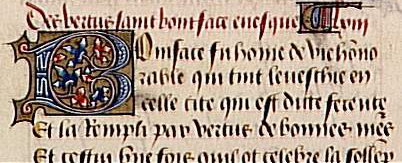 Des vertus saint boniface evesque
Boniface fu home de vie hono
rable qui tint leveschie en
celle cite qui est ditte ferente
Et la rempli par vertus de bonnes
Et cestui une fois quil ot celebre la